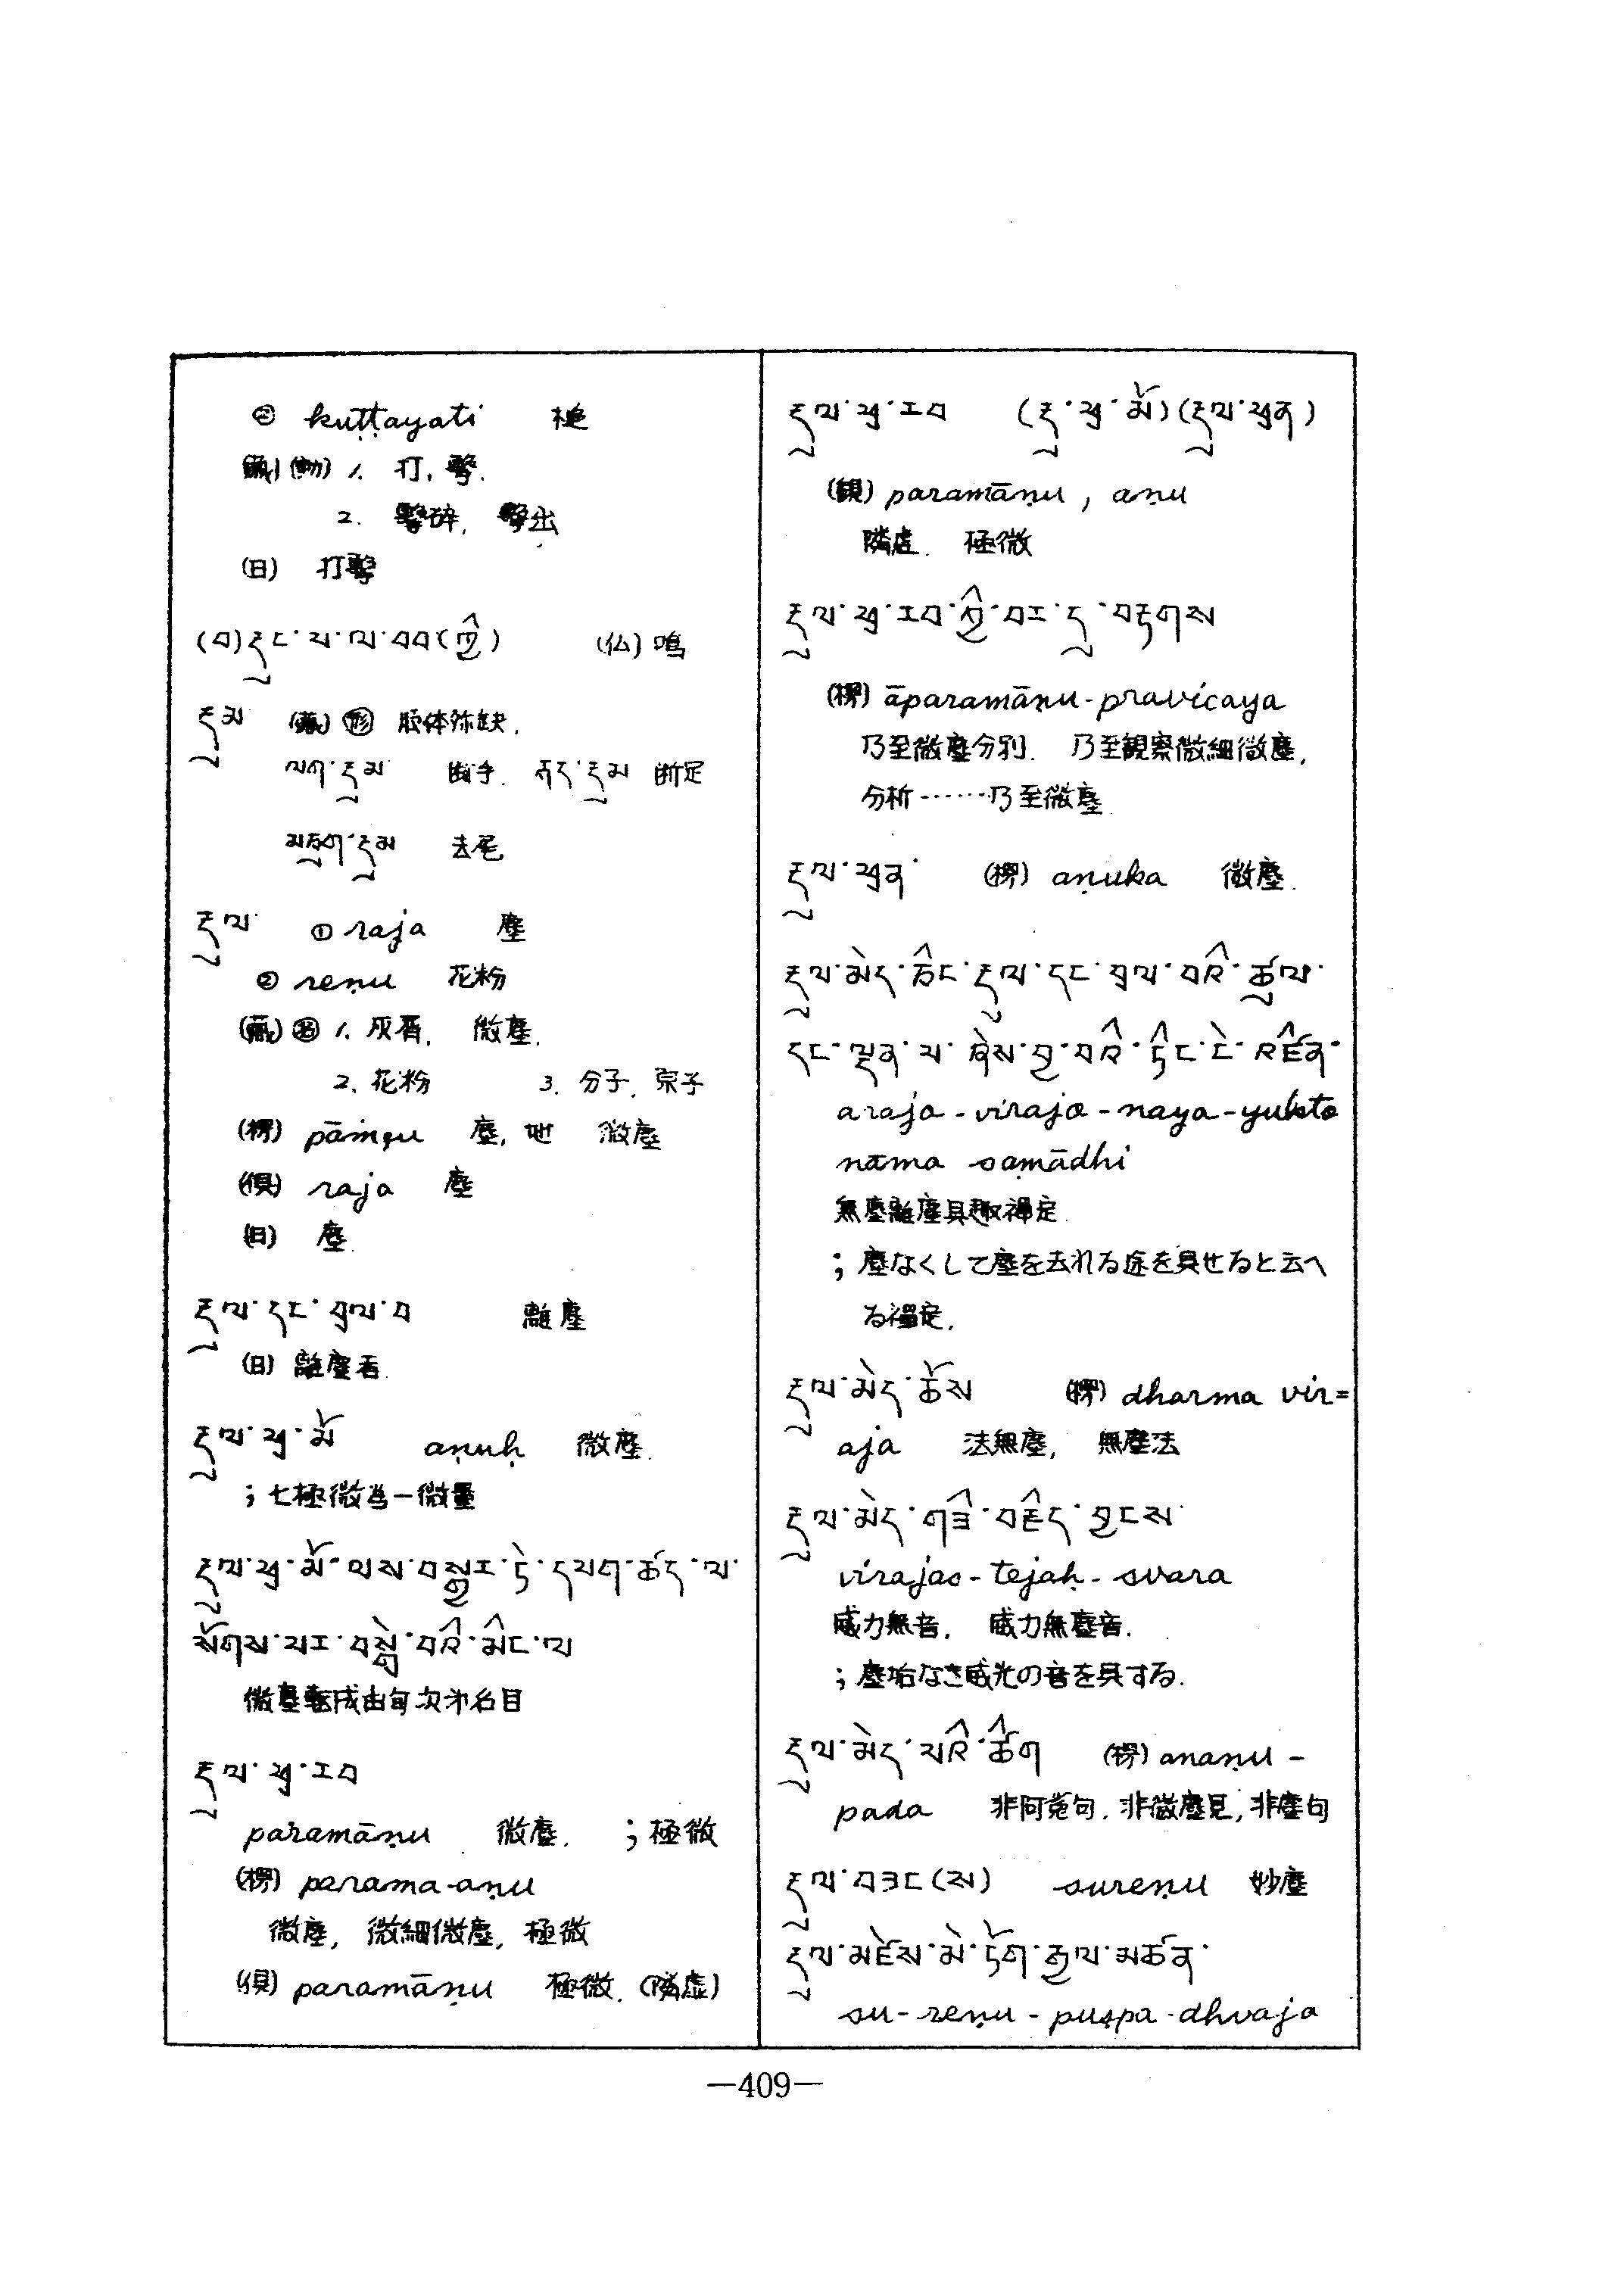 ② kuṭṭayati 槌
(藏)(動) 1. 打, 擊.
2. 擊碎, 擊出
(日) 打擊
(བ)རྡུང་པ་ལ་བབ(ཀྱི) (仏) 鳴
རྡུམ (藏) ㊒ 肢体弥缺.
ལག་རྡུམ 断手. རྐང་རྡུམ 断足
མཇུག་རྡུམ 去尾
རྡུལ ① raja 塵
② reṇu 花粉
(藏) ㊔ 1. 灰屑, 微塵,
2. 花粉 3. 分子, 原子
(楞) pāṁçu 塵, 地 微塵
(俱) raja 塵
(日) 塵
རྡུལ་དང་བྲལ་བ 離塵
(日) 離塵者
རྡུལ་ཕྲ་མོ aṇuḥ 微塵.
; 七極微為一微量
རྡུལ་ཕྲ་མོ་ལས་བསྒྱུར་ཏེ་དཔག་ཚད་ལ་
སོགས་པར་བསྒྲེ་བའི་མིང་ལ
微塵転成由旬次第名目
རྡུལ་ཕྲ་རབ
paramāṇu 微塵. ; 極微
(楞) parama-aṇu
微塵, 微細微塵, 極微
(俱) paramāṇu 極微. (隣虚)
རྡུལ་ཕྲ་རབ (རྡུ་ཕྲ་མོ)(རྡུལ་ཕྲན)
paramāṇu, aṇu
隣虚. 極微
རྡུལ་ཕྲ་རབ་ཀྱི་བར་དུ་བརྟགས
(楞) āparamāṇu-pravicaya
乃至微塵分別. 乃至観察微細微塵,
分析……乃至微塵
རྡུལ་ཕྲན་ (楞) aṇuka 微塵.
རྡུལ་མེད་ཅིང་རྡུལ་དང་བྲལ་བའི་ཚུལ་
དང་ལྡན་པ་ཞེས་བྱ་བའི་ཏིང་ངེ་འཛིན་
araja-viraja-naya-yukto
nāma samādhi
無塵離塵具趣禅定
; 塵なくして塵を去れる途を具せると云へ
る禅定.
རྡུལ་མེད་ཆོས (楞) dharma vir=
aja 法無塵, 無塵法
རྡུལ་མེད་གཟི་བརྗིད་དབྱངས
virajas-tejaḥ-svara
威力無音, 威力無塵音.
; 塵垢なき威光の音を具する.
རྡུལ་མེད་པའི་ཚིག (楞) ananu-
pada 非阿菟句, 非微塵見, 非塵句
རྡུལ་བཟང(ས) sureṇu 妙塵
རྡུལ་མཛེས་མེ་ཏོག་རྒྱལ་མཚན་
su-reṇu-puṣpa-dhvaja
—409—